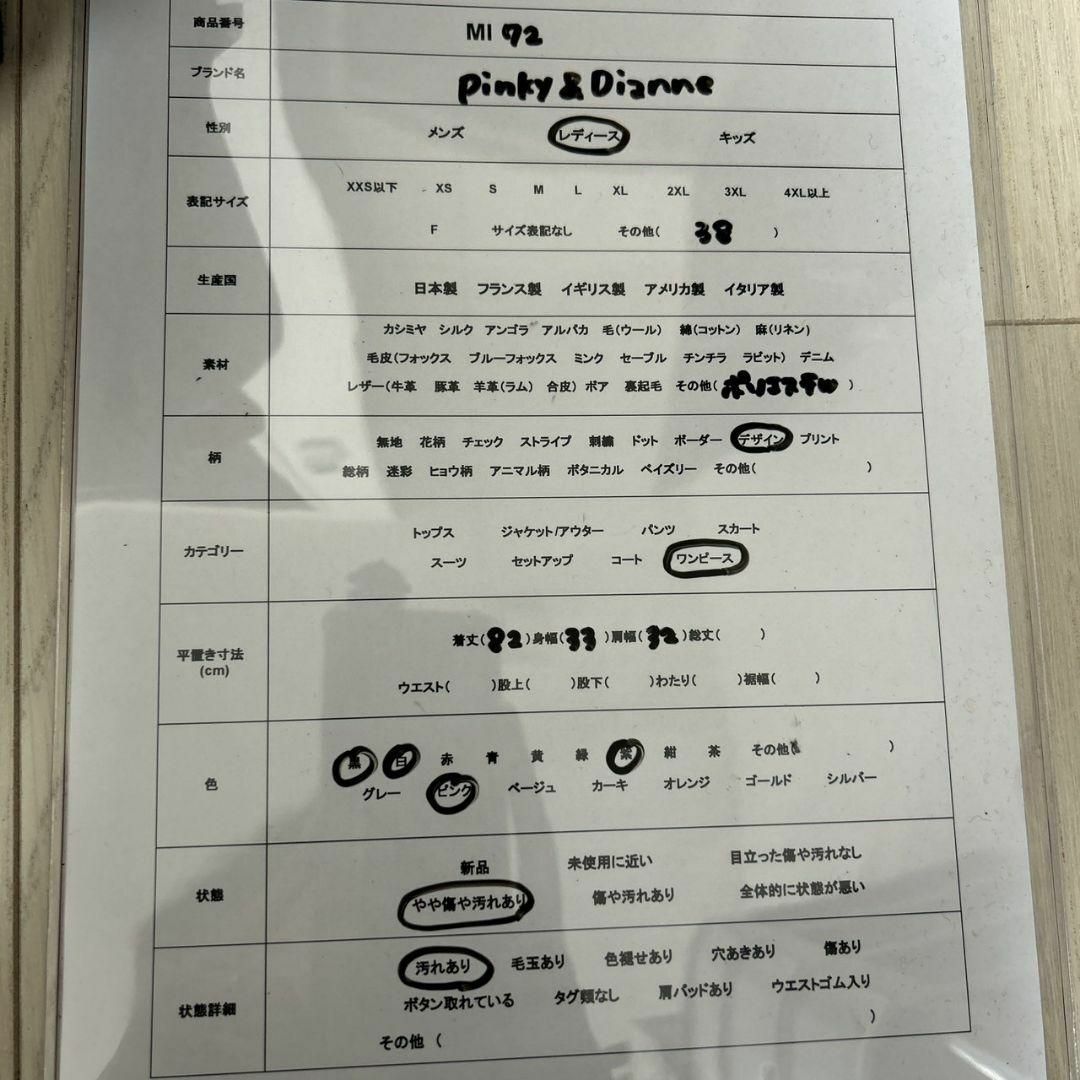 商品番号 MI 92
ブランド名 Pinky & Dianne
性別 メンズ レディース キッズ
表記サイズ XXS以下 XS S M L XL 2XL 3XL 4XL以上
F サイズ表記なし その他( 38 )
生産国 日本製 フランス製 イギリス製 アメリカ製 イタリア製
素材 カシミヤ シルク アンゴラ アルパカ 毛(ウール) 綿(コットン) 麻(リネン)
毛皮(フォックス ブルーフォックス ミンク セーブル チンチラ ラビット) デニム
レザー(牛革 豚革 羊革(ラム) 合皮) ボア 裏起毛 その他( ポリエステル )
柄 無地 花柄 チェック ストライプ 刺繍 ドット ボーダー デザイン プリント
総柄 迷彩 ヒョウ柄 アニマル柄 ボタニカル ペイズリー その他( )
カテゴリー トップス ジャケット/アウター パンツ スカート
スーツ セットアップ コート ワンピース
平置き寸法
(cm)
着丈(82)身幅(33)肩幅(32)総丈( )
ウエスト( )股上( )股下( )わたり( )裾幅( )
色 黒 白 赤 青 黄 緑 紫 紺 茶 その他( )
グレー ピンク ベージュ カーキ オレンジ ゴールド シルバー
状態 新品 未使用に近い 目立った傷や汚れなし
やや傷や汚れあり 傷や汚れあり 全体的に状態が悪い
状態詳細 汚れあり 毛玉あり 色褪せあり 穴あきあり 傷あり
ボタン取れている タグ類なし 肩パッドあり ウエストゴム入り
その他 ( )